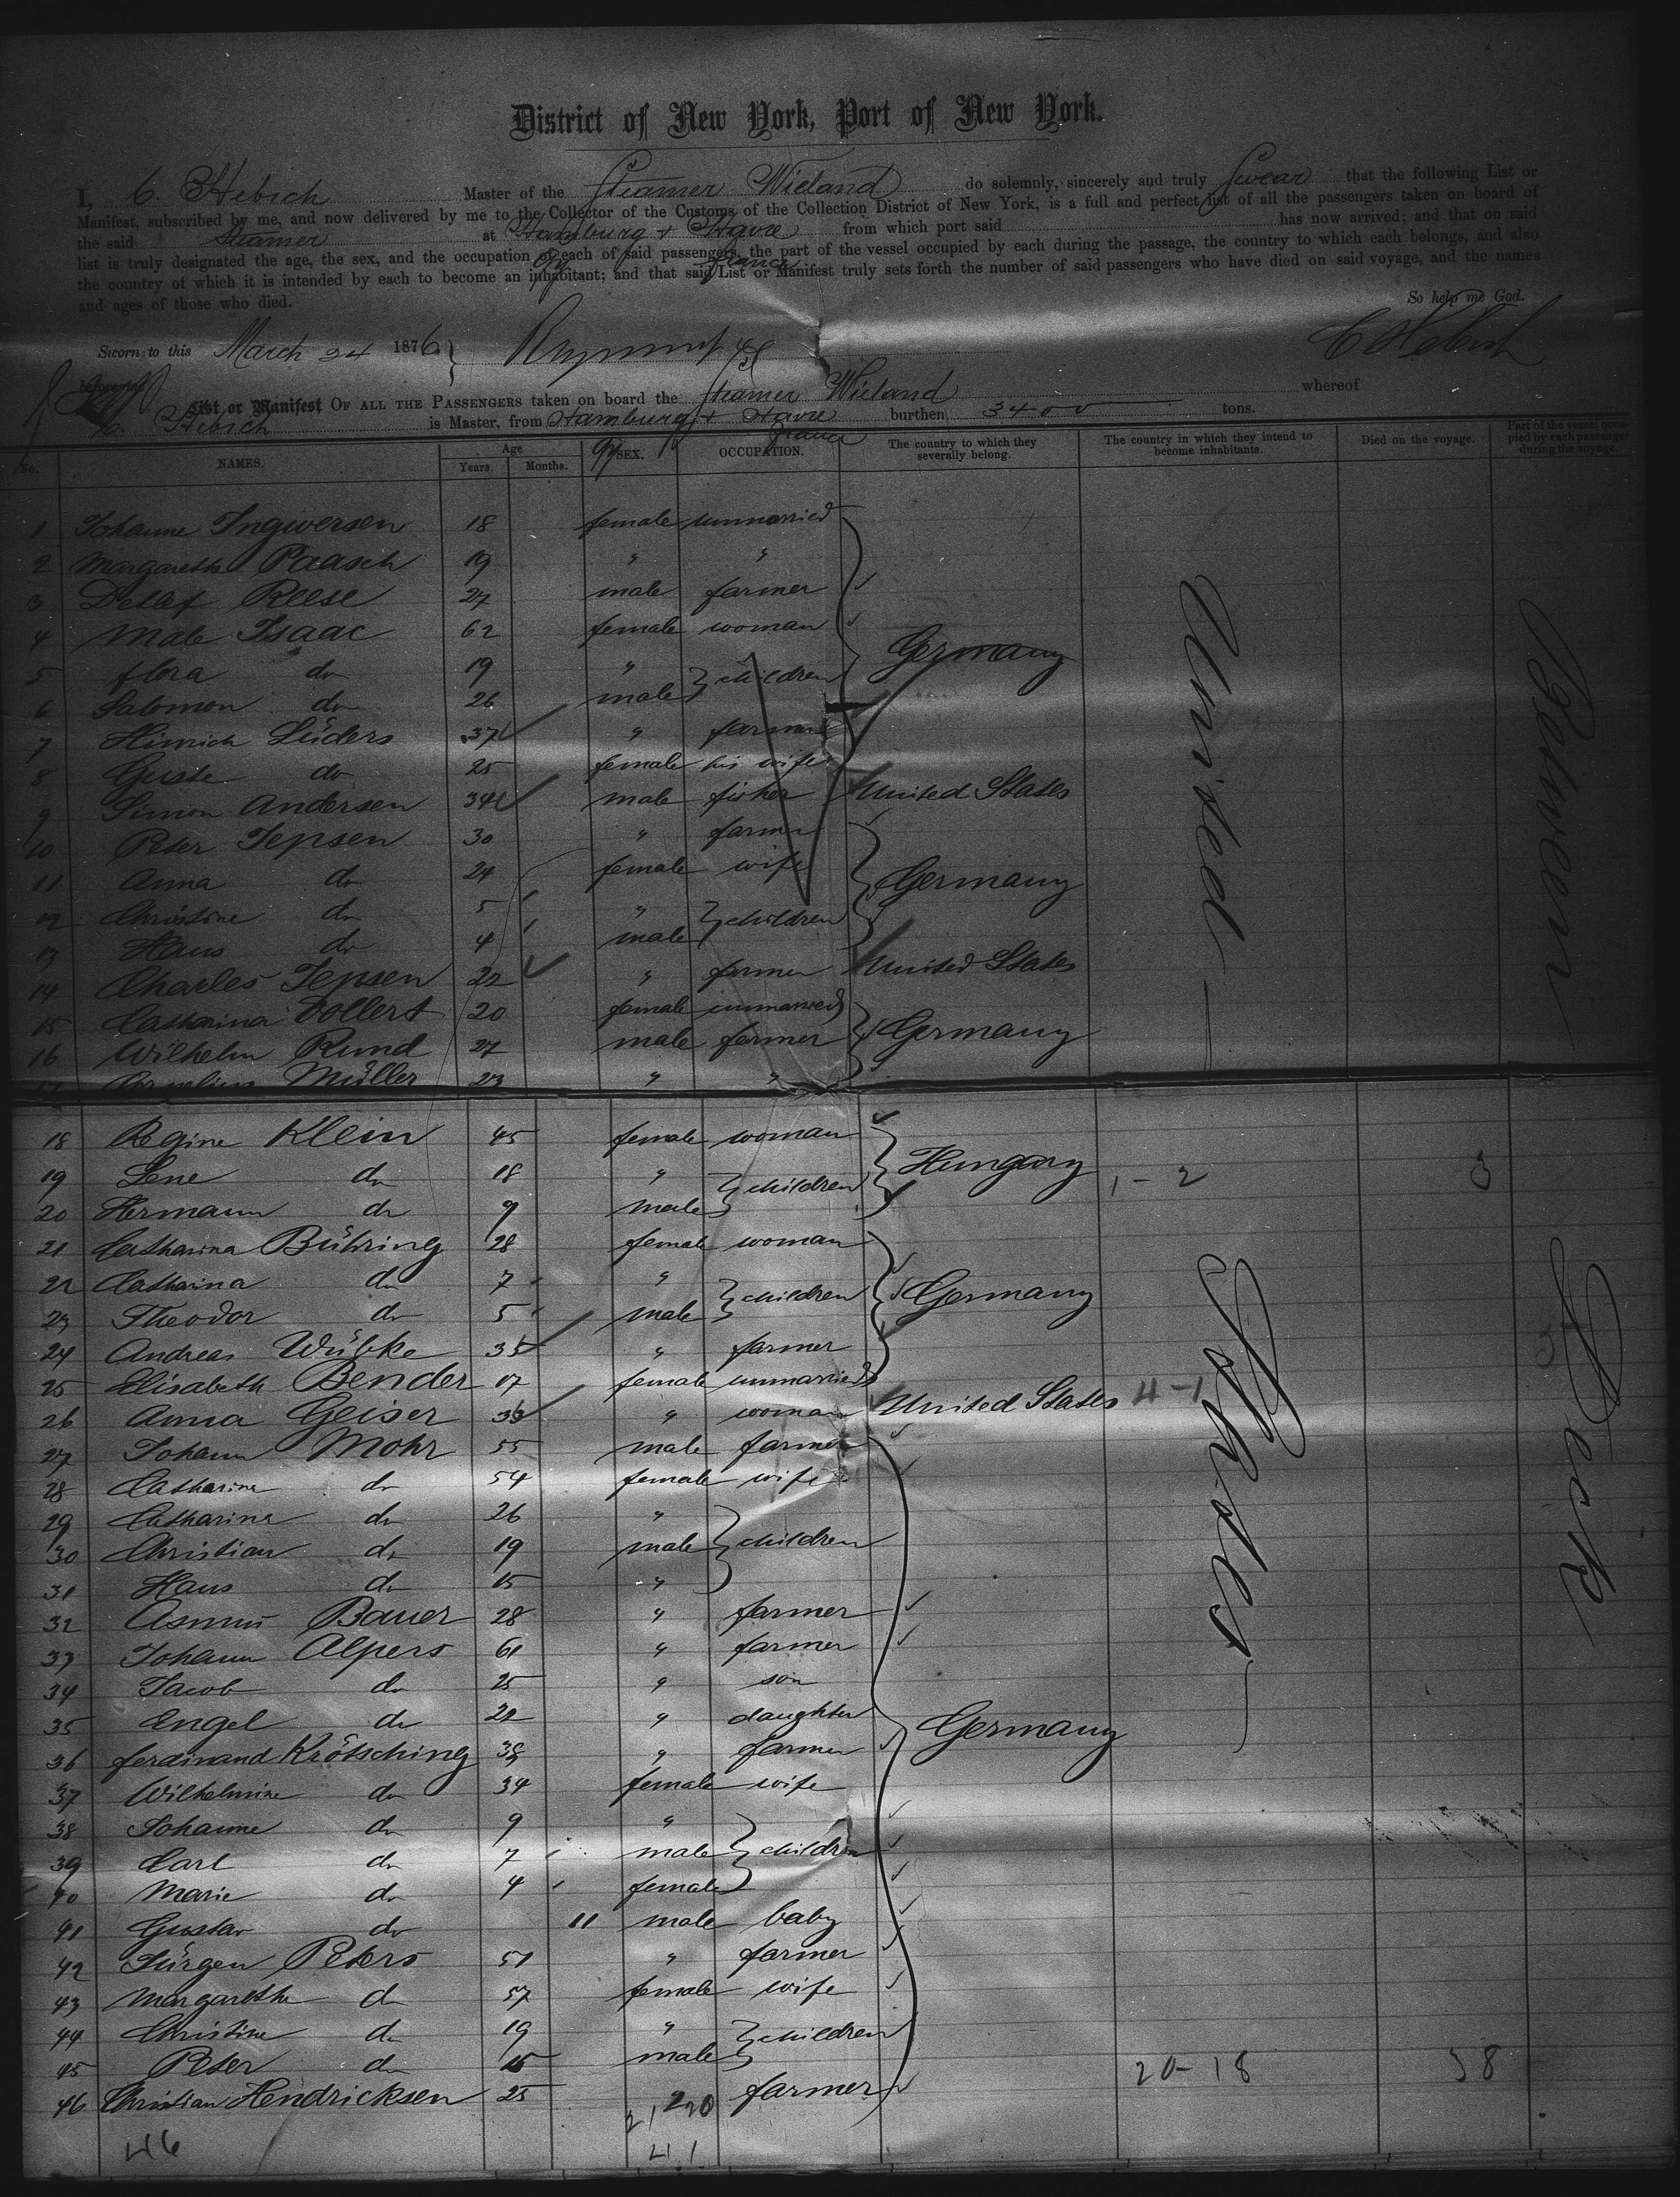 District of New York, Port of New York.
I, C. Hebich Master of the Steamer Wieland do solemnly, sincerely and truly Swear that the following List or
Manifest, subscribed by me, and now delivered by me to the Collector of the Customs of the Collection District of New York, is a full and perfect list of all the passengers taken on board of
the said Steamer at Hamburg + Havre from which port said has now arrived; and that on said
list is truly designated the age, the sex, and the occupation of each of said passengers, the part of the vessel occupied by each during the passage, the country to which each belongs, and also
France
the country of which it is intended by each to become an inhabitant; and that said List or Manifest truly sets forth the number of said passengers who have died on said voyage, and the names
and ages of those who died.
So help me God.
Sworn to this March 24 1876 C Hebich
before me
List or Manifest OF ALL THE PASSENGERS taken on board the Steamer Wieland whereof
C. Hebich is Master, from Hamburg + Havre burthen 3400 tons.
France
No. NAMES. Age Years. Months. SEX. OCCUPATION. The country to which they severally belong. The country in which they intend to become inhabitants. Died on the voyage. Part of the vessel occupied by each passenger during the voyage.
1 Johanne Ingwersen 18 female unmarried
2 Margarethe Paasch 19 " "
3 Detlef Reese 27 male farmer
4 Male Isaac 62 female woman
Germany
5 Flora do 19 " children
6 Salomon do 26 male
7 Hinrich Lüders 37 " farmer
8 Guste do 25 female his wife
9 Simon Andersen 34 male fisher United States
10 Peter Jepsen 30 " farmer
11 Anna do 24 female wife Germany
12 Christine do 5 " children
13 Hans do 4 male
14 Charles Jepsen 22 " farmer United States
15 Catharina Vollert 20 female unmarried
16 Wilhelm Rund 27 male farmer Germany
17 Cornelius Müller 23 " "
18 Regine Klein 45 female woman
19 Lene do 18 " children Hungary 1-2 3
20 Hermann do 9 male
21 Catharina Bühring 28 female woman
22 Catharina do 7 " children Germany
23 Theodor do 5 male
24 Andreas Wübke 35 " farmer
25 Elisabeth Bender 17 female unmarried
26 Anna Geiser 36 " woman United States 4-1
27 Johann Mohr 55 male farmer
28 Catharine do 54 female wife
29 Catharina do 26 "
30 Christian do 19 male children
31 Hans do 15 "
32 Asmus Bauer 28 " farmer
33 Johann Alpers 61 " farmer
34 Jacob do 25 " son
35 Engel do 22 " daughter Germany
36 Ferdinand Krötsching 38 " farmer
37 Wilhelmine do 34 female wife
38 Johanne do 9 "
39 Carl do 7 male children
40 Marie do 4 female
41 Gustav do 11 male baby
42 Jürgen Peters 51 " farmer
43 Margarethe do 57 female wife
44 Christine do 19 " children
45 Peter do 15 male
20-18 38
46 Christian Hendricksen 25 farmer
46
41
United States
Between Deck